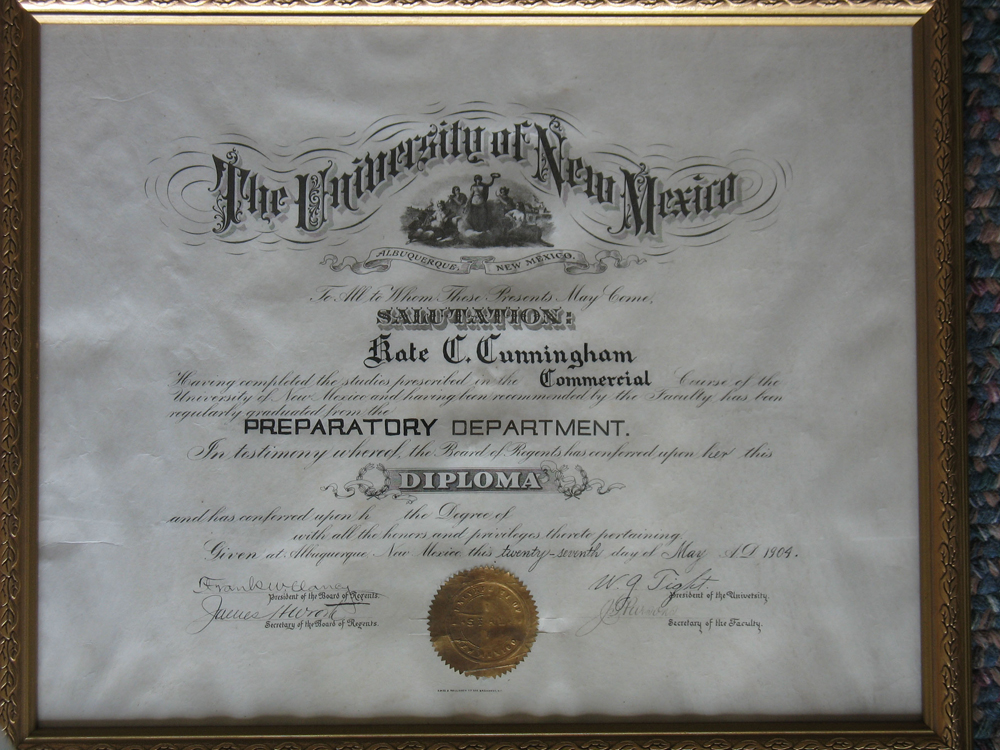 The University of New Mexico
ALBUQUERQUE, NEW MEXICO.
To All to Whom These Presents May Come,
SALUTATION:
Kate C. Cunningham
Having completed the studies prescribed in the Commercial Course of the
University of New Mexico and having been recommended by the Faculty has been
regularly graduated from the
PREPARATORY DEPARTMENT.
In testimony whereof, the Board of Regents has conferred upon her this
DIPLOMA
and has conferred upon h the Degree of
with all the honors and privileges thereto pertaining
Given at Albuquerque New Mexico this twenty-seventh day of May A.D. 1904.
W. G. Tight
President of the Board of Regents.
President of the University.
James H. Wroth
Secretary of the Board of Regents.
Secretary of the Faculty.
SEAL